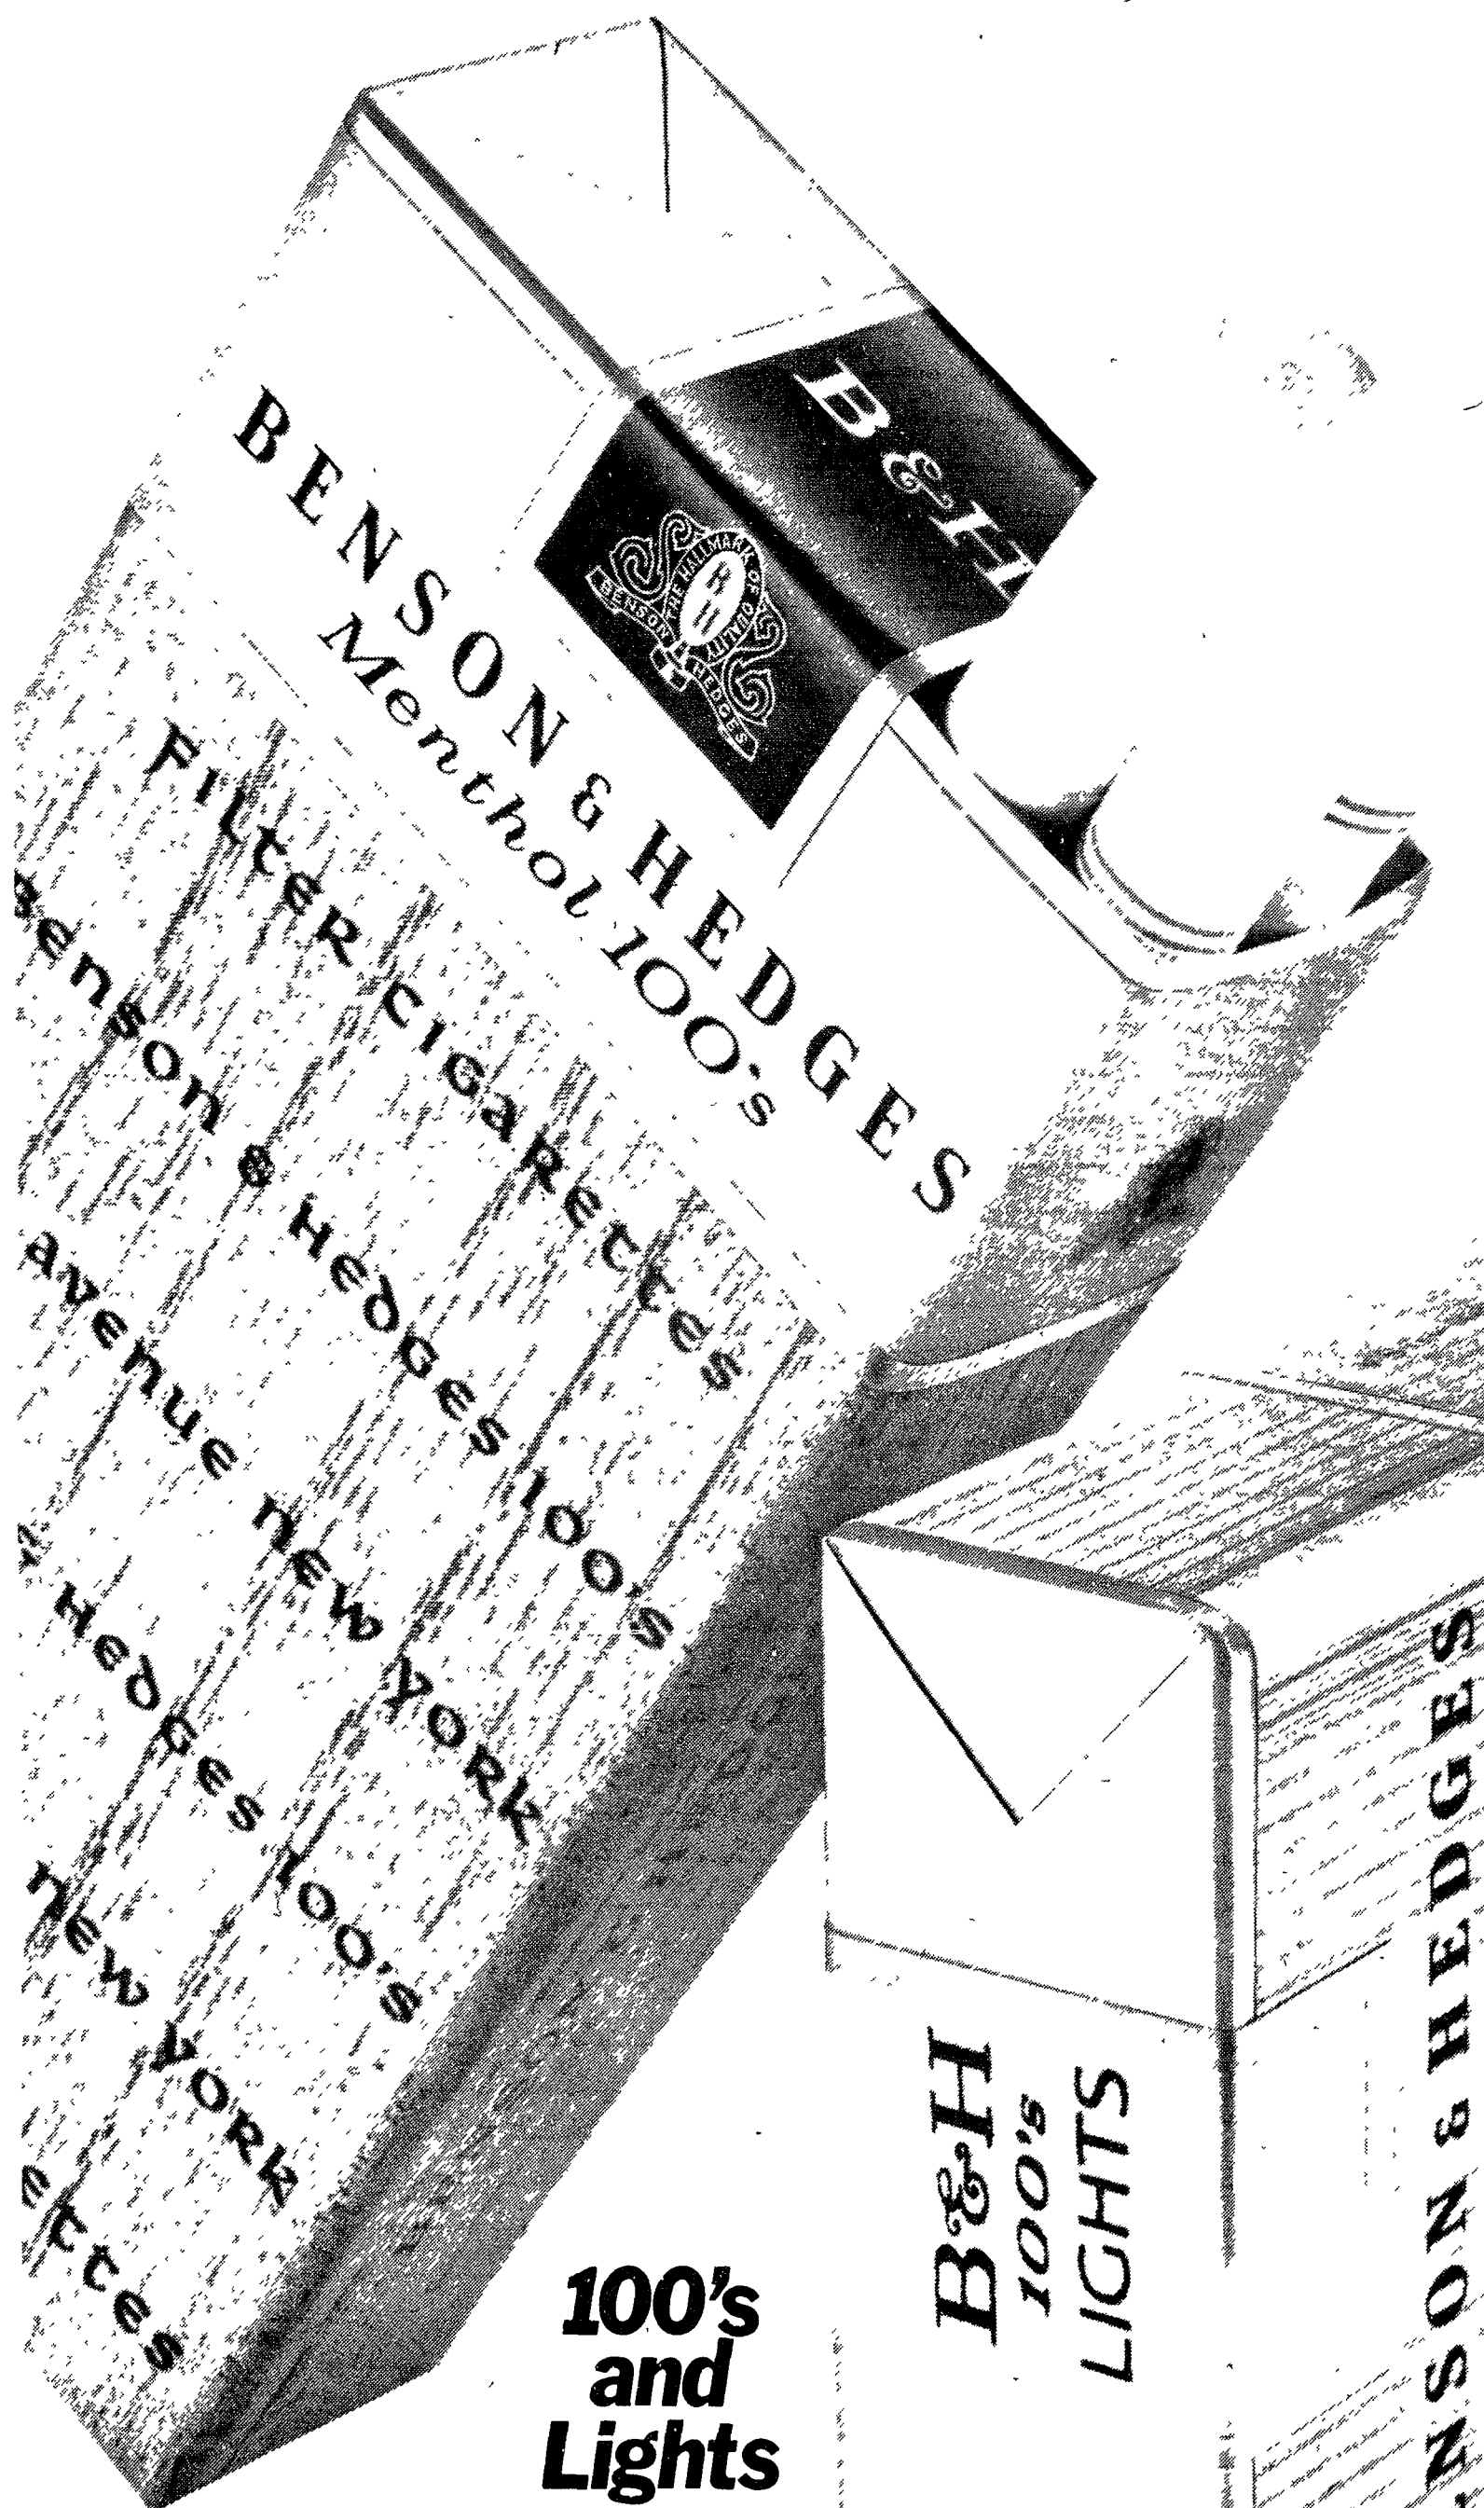 B&H
THE HALLMARK OF QUALITY
B
H
BENSON & HEDGES
BENSON & HEDGES
Menthol 100's
FILTER CIGARETTES
Benson & Hedges 100's
avenue new york
Hedges 100's
new york
ettes
B&H
100's
LIGHTS
NSON & HEDGES
100's
and
Lights